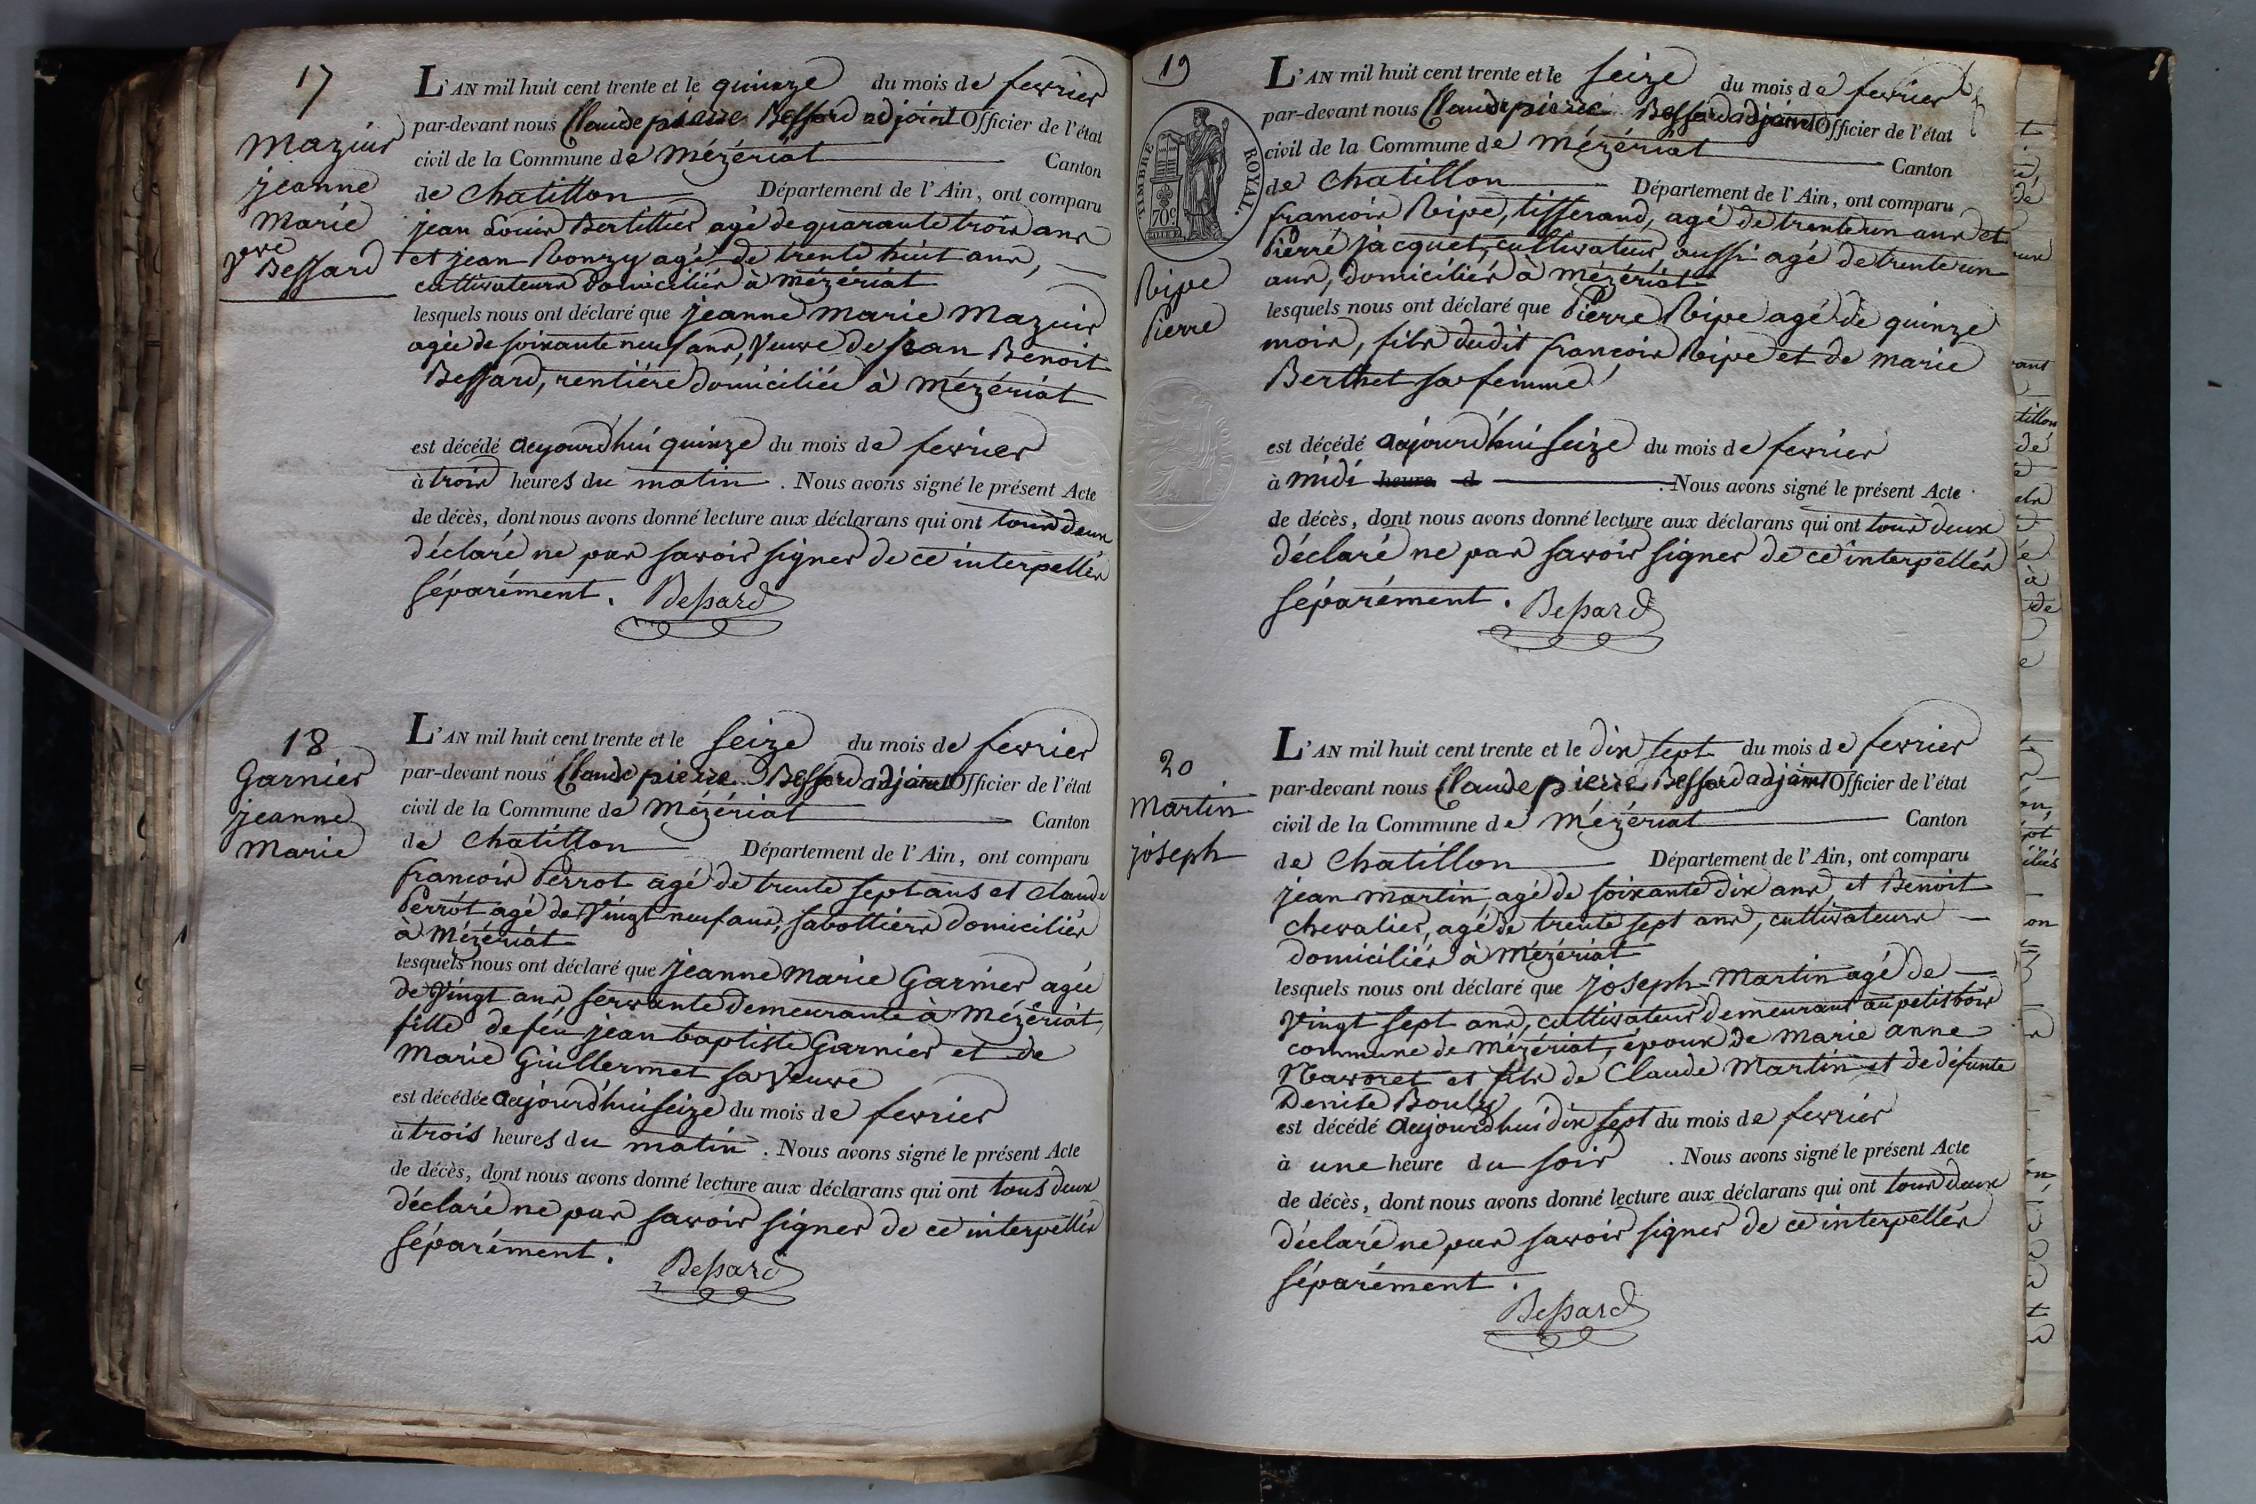 17
Mazuir
jeanne
Marie
vve
Bessard
L'AN mil huit cent trente et le quinze du mois de fevrier
par-devant nous Claude pierre Bessard adjoint Officier de l'état
civil de la Commune de Mézériat Canton
de Chatillon Département de l'Ain, ont comparu
jean Louis Bertillier agé de quarante trois ans
et jean Ronzy agé de trente huit ans,
cultivateurs domiciliés à Mézériat
lesquels nous ont déclaré que jeanne marie Mazuir
agée de soixante neuf ans, Veuve de jean Benoit
Bessard, rentière domiciliée à Mézériat
est décédé aujourd'hui quinze du mois de fevrier
à trois heures du matin. Nous avons signé le présent Acte
de décès, dont nous avons donné lecture aux déclarans qui ont tous deux
déclaré ne pas savoir signer de ce interpellés
séparément. Bessard
18
Garnier
jeanne
Marie
L'AN mil huit cent trente et le seize du mois de fevrier
par-devant nous Claude pierre Bessard adjoint Officier de l'état
civil de la Commune de Mézériat Canton
de Chatillon Département de l'Ain, ont comparu
francois Perrot agé de trente sept ans et claude
Perrot agé de Vingt neuf ans, sabottiers domiciliés
à Mézériat
lesquels nous ont déclaré que jeanne Marie Garnier agée
de Vingt ans servante demeurante à Mézériat,
fille de feu jean baptiste Garnier et de
Marie Guillermet sa Veuve
est décédée aujourd'hui seize du mois de fevrier
à trois heures du matin. Nous avons signé le présent Acte
de décès, dont nous avons donné lecture aux déclarans qui ont tous deux
déclaré ne pas savoir signer de ce interpellés
séparément.
Bessard
19
TIMBRE ROYAL.
70c
Ripe
Pierre
L'AN mil huit cent trente et le seize du mois de fevrier
par-devant nous Claude pierre Bessard adjoint Officier de l'état
civil de la Commune de Mézériat Canton
de Chatillon Département de l'Ain, ont comparu
francois Ripe, tisserand, agé de trente un ans et
Pierre jacquet, cultivateur, aussi agé de trente un
ans, domiciliés à Mézériat
lesquels nous ont déclaré que Pierre Ripe agé de quinze
mois, fils dudit francois Ripe et de marie
Berthet sa femme
est décédé aujourd'hui seize du mois de fevrier
à midi heure d . Nous avons signé le présent Acte
de décès, dont nous avons donné lecture aux déclarans qui ont tous deux
déclaré ne pas savoir signer de ce interpellés
séparément. Bessard
20
Martin
joseph
L'AN mil huit cent trente et le dix sept du mois de fevrier
par-devant nous Claude pierre Bessard adjoint Officier de l'état
civil de la Commune de Mézériat Canton
de Chatillon Département de l'Ain, ont comparu
jean Martin, agé de soixante dix ans et Benoit
chevalier, agé de trente sept ans, cultivateurs
domiciliés à Mézériat
lesquels nous ont déclaré que joseph Martin agé de
Vingt sept ans, cultivateur demeurant au petit bois
commune de Mézériat, époux de Marie anne
Navoret et fils de Claude Martin et de défunte
Denise Bouly
est décédé aujourd'hui dix sept du mois de fevrier
à une heure du soir . Nous avons signé le présent Acte
de décès, dont nous avons donné lecture aux déclarans qui ont tous deux
déclaré ne pas savoir signer de ce interpellés
séparément.
Bessard